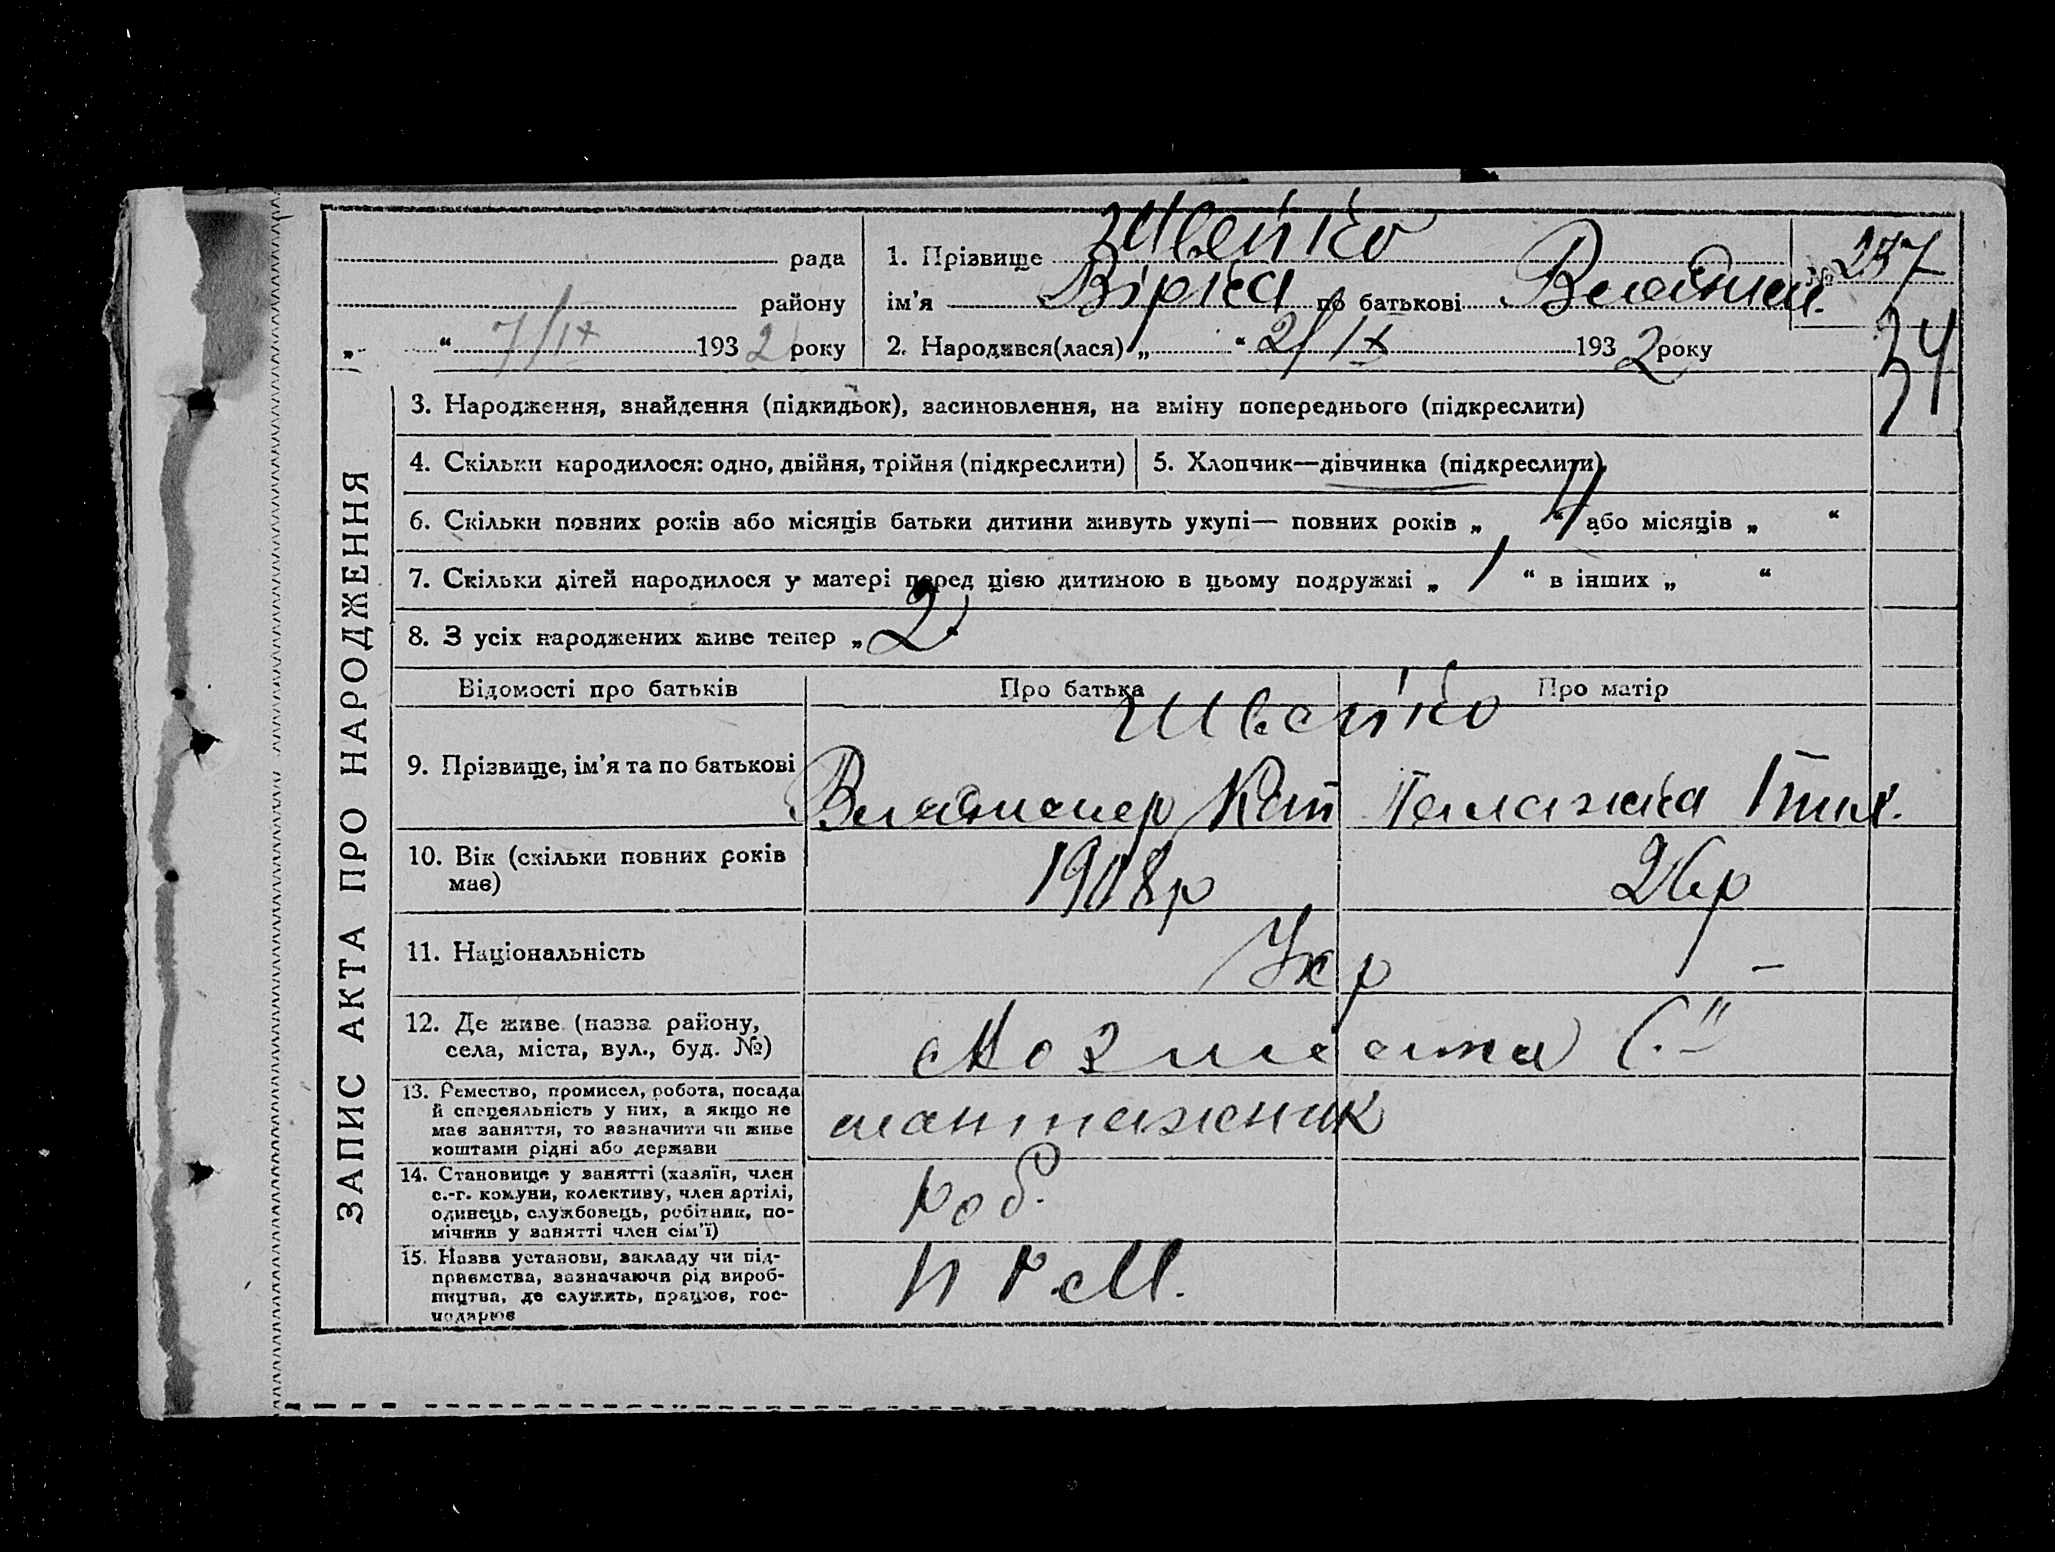 ЗАПИС АКТА ПРО НАРОДЖЕННЯ
рада
району
„ “ 7/IX 1932 року
1. Прізвище Швейко
ім’я Вірка по батькові Владим.
№ 257
34
2. Народився(лася) „ “ 2/IX 1932 року
3. Народження, знайдення (підкидьок), засиновлення, на зміну попереднього (підкреслити)
4. Скільки народилося: одно, двійня, трійня (підкреслити)
5. Хлопчик—дівчинка (підкреслити)
6. Скільки повних років або місяців батьки дитини живуть укупі— повних років „ 4 “ або місяців „ “
7. Скільки дітей народилося у матері перед цією дитиною в цьому подружжі „ 1 “ в інших „ “
8. З усіх народжених живе тепер „ 2 “
Відомості про батьків
Про батька
Про матір
9. Прізвище, ім’я та по батькові
Швейко
Владимер
10. Вік (скільки повних років
має)
1908р
26р
11. Національність
Укр –
12. Де живе (назва району,
села, міста, вул., буд. №)
13. Ремество, промисел, робота, посада
й спецеяльність у них, а якщо не
має заняття, то зазначити чи живе
коштами рідні або держави
мантажник
14. Становище у занятті (хазяїн, член
с.-г. комуни, колективу, член артілі,
одинець, службовець, робітник, по-
мічник у занятті член сім’ї)
роб.
15. Назва установи, закладу чи під-
приємства, зазначаючи рід вироб-
ництва, де служить, працює, гос-
подарює